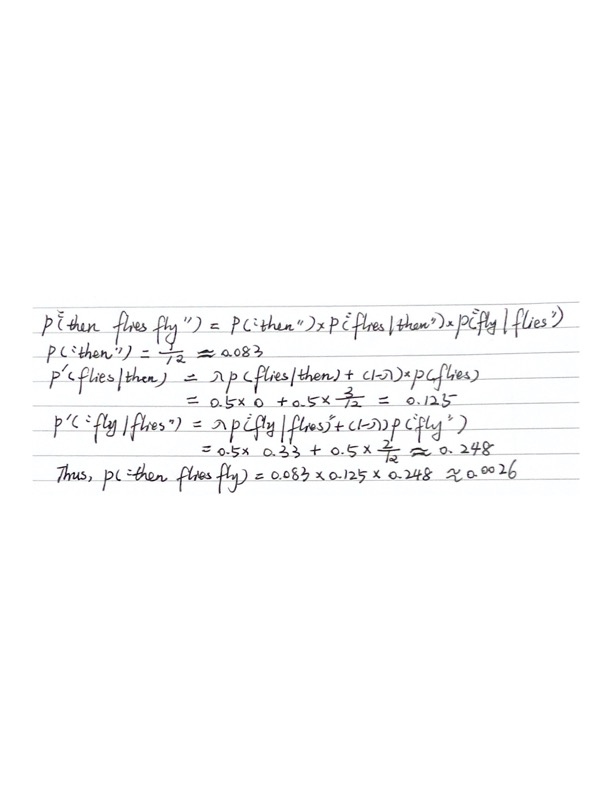 P("then flies fly") = P("then")×P("flies|then")×P("fly|flies")
P("then") = 1/12 ≈ 0.083
P'(flies|then) = λp(flies|then) + (1-λ)×P(flies)
= 0.5×0 + 0.5×3/12 = 0.125
P'("fly|flies") = λp("fly|flies)"+(1-λ)p("fly")
= 0.5× 0.33 + 0.5×2/12 ≈ 0.248
Thus, P("then flies fly) = 0.083×0.125×0.248 ≈ 0.0026